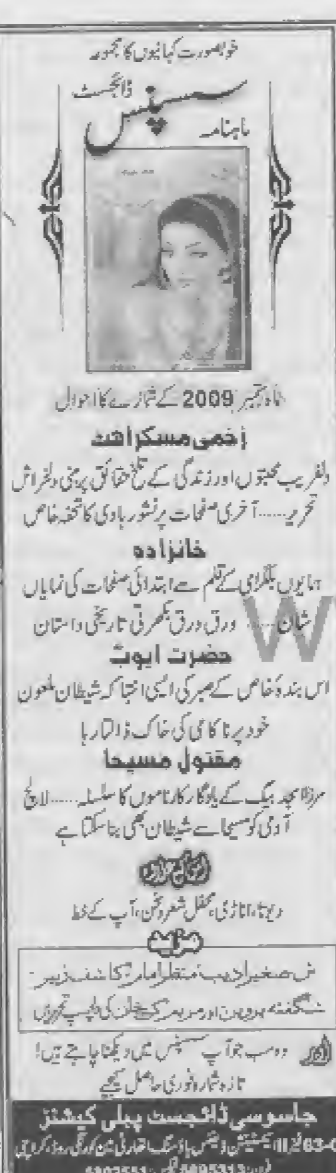 خوبصورت کہانیوں کا مجموعہ
ماہنامہ سسپنس ڈائجسٹ
ماہ ستمبر 2009 کے شمارے کا احوال
زخمی مسکراہٹ
دلفریب محبتوں اور زندگی کے تلخ حقائق پر مبنی دلخراش
تحریر......آخری صفحات پر نشور ہادی کا تحفہ خاص
خانزادہ
ہمایوں بلگرامی کے قلم سے ابتدائی صفحات کی نمایاں
شان...... ورق ورق بکھرتی تاریخی داستان
حضرت ایوبؑ
اس بندۂ خاص کے صبر کی ایسی انتہا کہ شیطان ملعون
خود پر ناکامی کی خاک ڈالتا رہا
مقتول مسیحا
مرزا امجد بیگ کے یادگار کارناموں کا سلسلہ......لالچ
آدمی کو مسیحا سے شیطان بھی بنا سکتا ہے
اس کے علاوہ
دیوتا، اناڑی، محفل شعر و سخن، آپ کے خط
مزید
ش صغیر ادیب، منظر امام، کاشف زبیر
شگفتہ پروین اور مریم کے خان کی دلچسپ تحریریں
اور وہ سب جو آپ سسپنس میں دیکھنا چاہتے ہیں!
تازہ شمارہ فوری حاصل کیجیے
جاسوسی ڈائجسٹ پبلی کیشنز
63-C فیز II ایکسٹینشن ڈیفنس ہاؤسنگ اتھارٹی مین کورنگی روڈ، کراچی
فون: 5895313 فیکس: 5802551
W